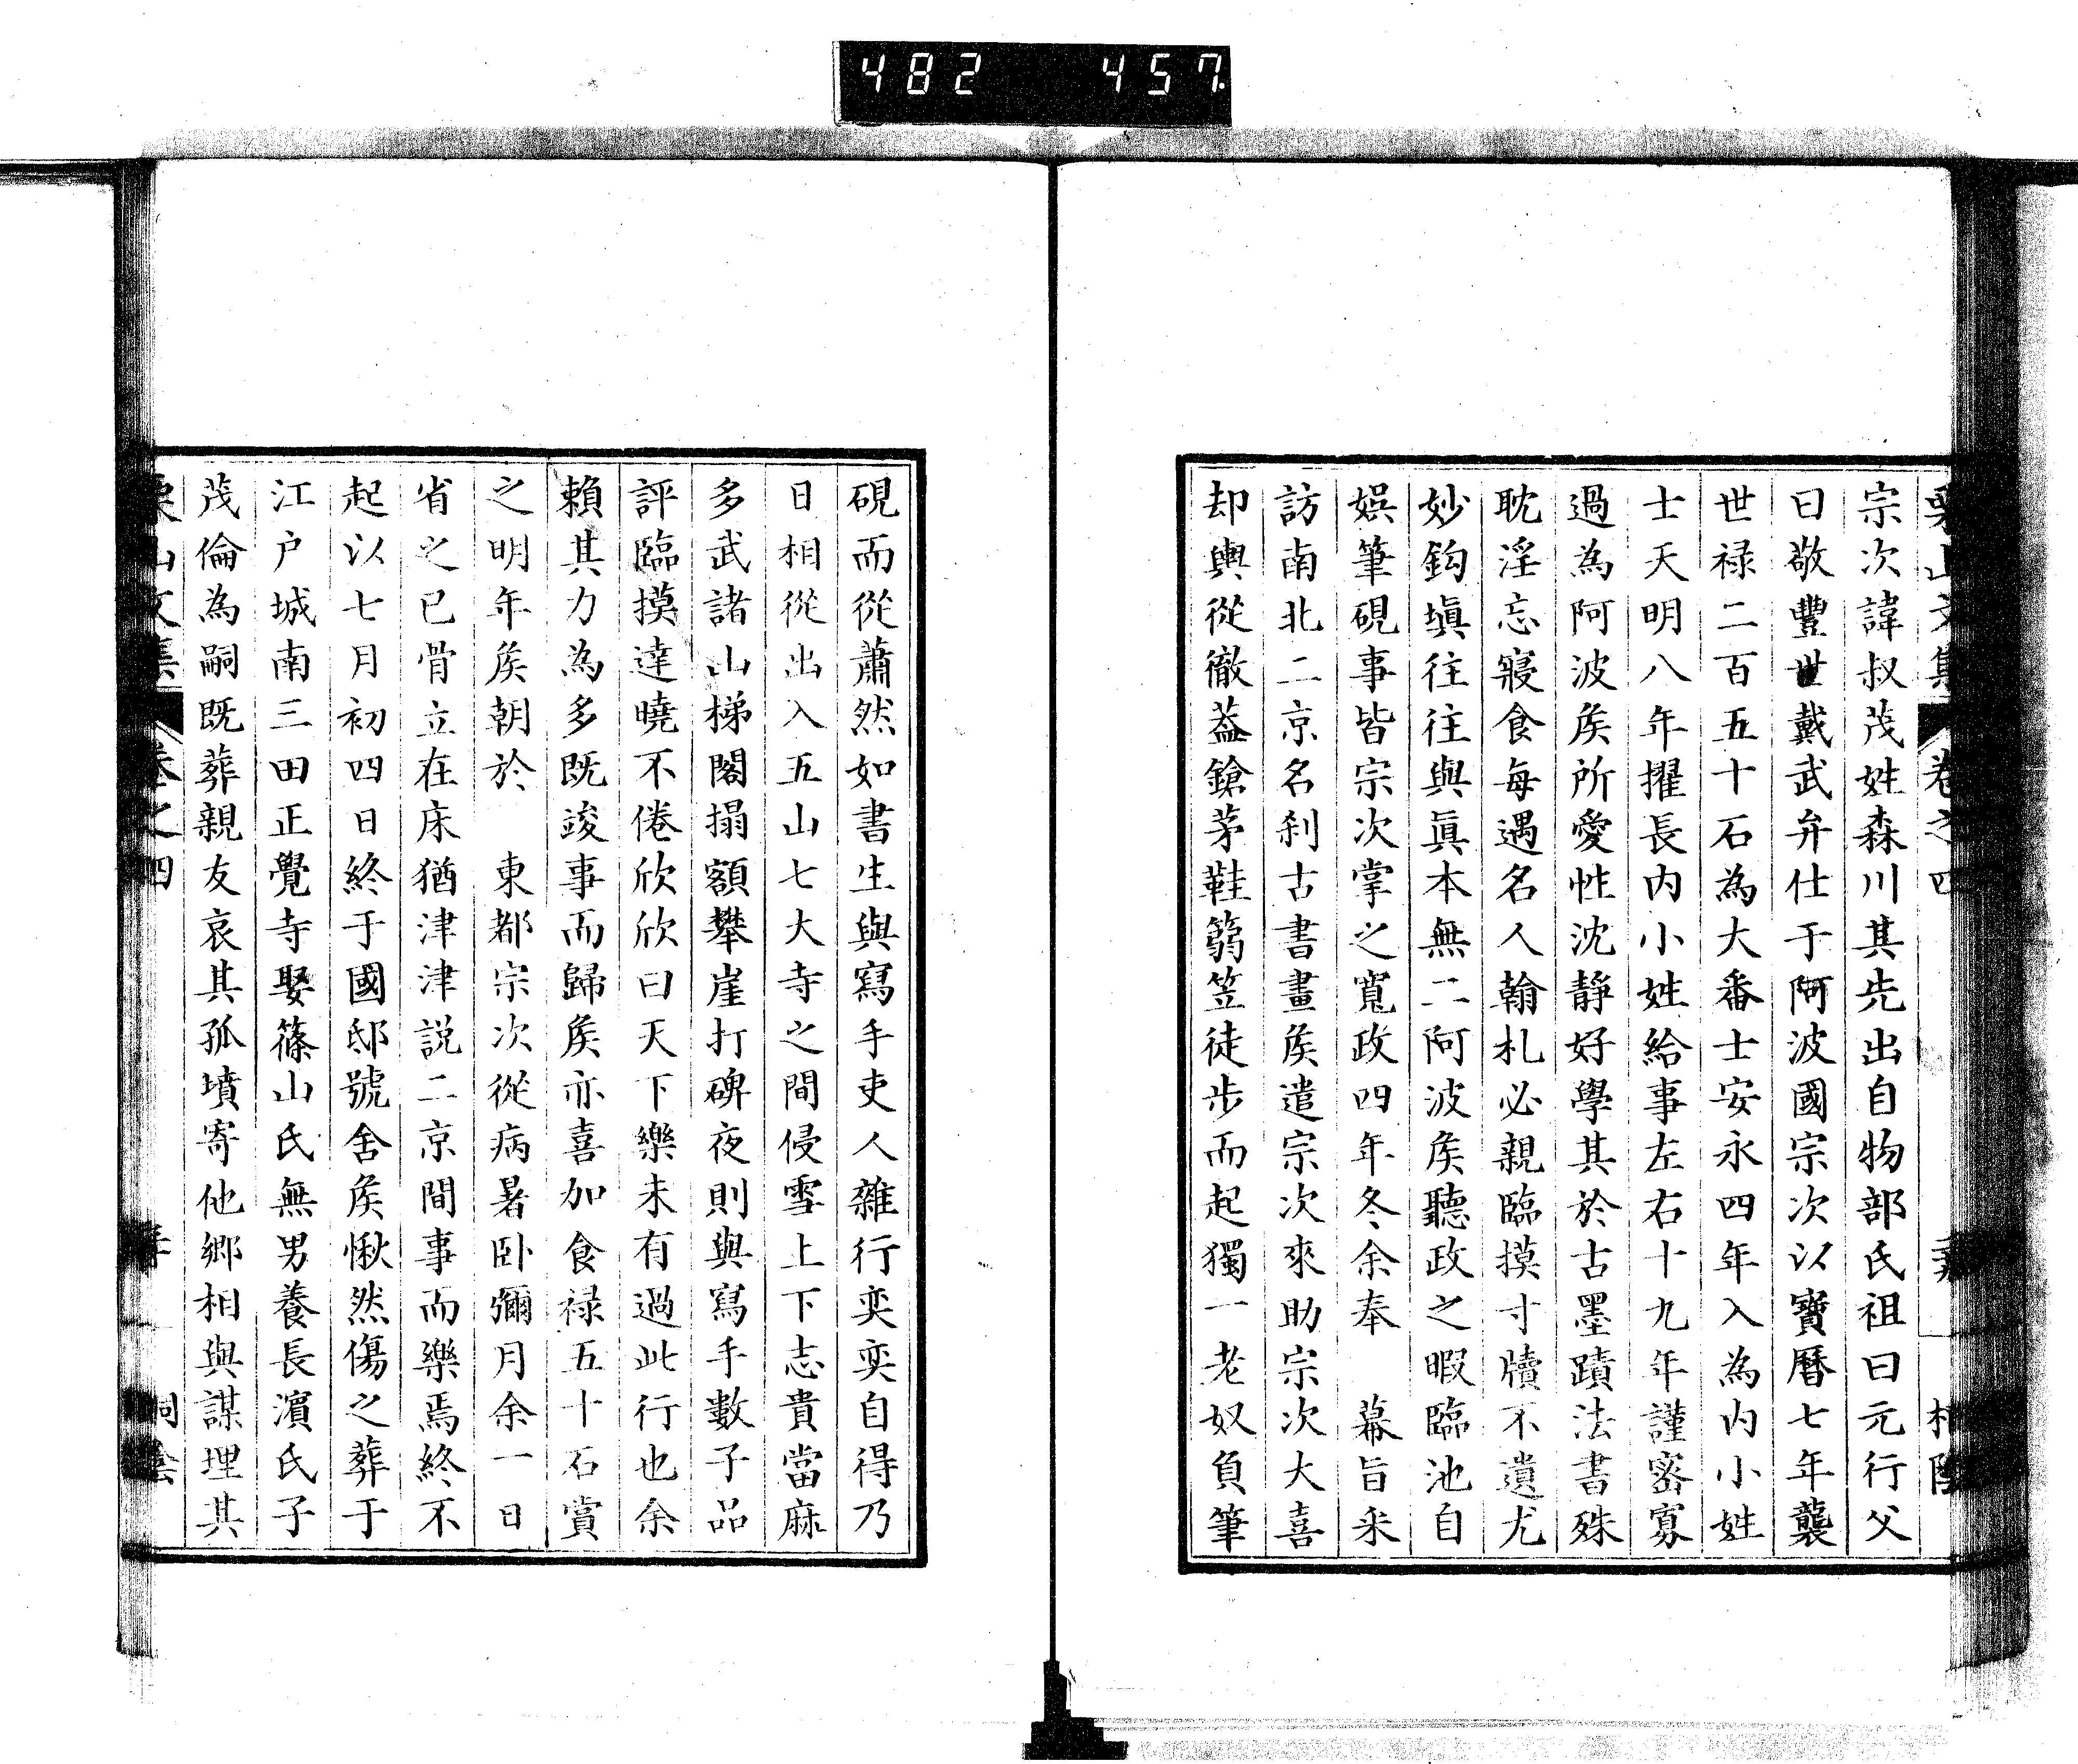 482 457
栗山文集 卷之四
宗次諱叔茂姓森川其先出自物部氏祖曰元行父
曰敬豐世戴武弁仕于阿波國宗次以寶曆七年襲
世禄二百五十石為大番士安永四年入為内小姓
士天明八年擢長内小姓給事左右十九年謹密寡
過為阿波矦所愛性沈静好學其於古墨蹟法書殊
耽淫忘寢食每遇名人翰札必親臨摸寸牘不遺尤
妙鈎塡往往與眞本無二阿波矦聽政之暇臨池自
娯筆硯事皆宗次掌之寬政四年冬余奉　幕旨来
訪南北二京名刹古書畫矦遣宗次來助宗次大喜
却輿從徹葢鎗茅鞋篛笠徒步而起獨一老奴負筆
硯而從蕭然如書生與寫手吏人雜行奕奕自得乃
日相從出入五山七大寺之間侵雪上下志貴當麻
多武諸山梯閣搨額攀崖打碑夜則與寫手數子品
評臨摸達曉不倦欣欣曰天下樂未有過此行也余
賴其力為多既竣事而歸矦亦喜加食禄五十石賞
之明年矦朝於　東都宗次從病暑卧彌月余一日
省之已骨立在床猶津津説二京間事而樂焉終不
起以七月初四日終于國邸號舍矦愀然傷之葬于
江戸城南三田正覺寺娶篠山氏無男養長濵氏子
茂倫為嗣既葬親友哀其孤墳寄他郷相與謀埋其
栗山文集 卷之四